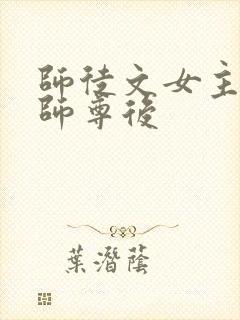 師徒文女主
師尊後
葉潛蔭